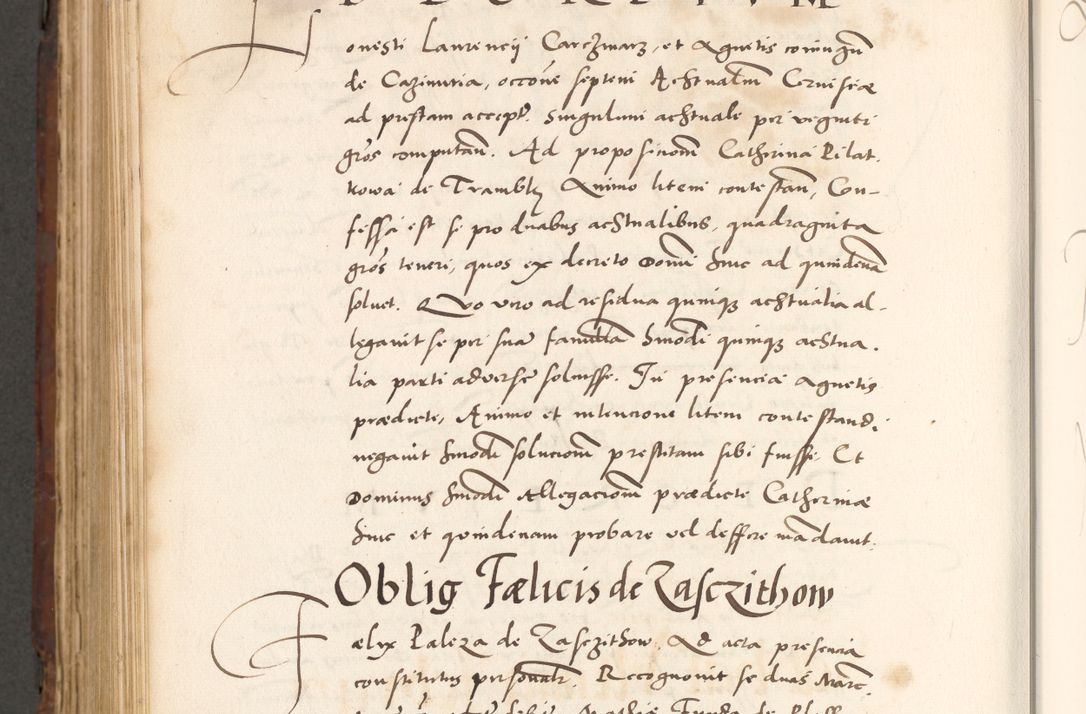 Honesti Laurencij Carczmarz, et Agnetis coniugũ
de Cazimiria, occõne septem Achtualiũ Cervisiæ
ad prestam accept. Singulum achtuale per viginti
gros computañ. Ad proposicioñ Catherina Pilat.
kowa de Trambky Animo litem contestañ, Con-
fessa est se pro duabus achtualibus, quadraginta
gros teneri, quos ex decreto Domi hinc ad quindenã
solvet. Quo vero ad residua quinqz achtualia al-
legavit se per suã famulã hmodi quinqz achtua.
lia parti adverse solvisse. In presencia Agnetis
prædicte, Animo et intencione litem contestandi
negavit hmodi solucioñ prestitam sibi fuisse. Et
Dominus hmodi Allegacioñ prædicte Catherinæ
hinc et quindenam probare vel deffere mãdavit.
Oblig Fælicis de Zasczithow
Fælix Paleza de Zasczithow. Ad acta presencia
constitutus personalr. Recognovit se duas Marc.